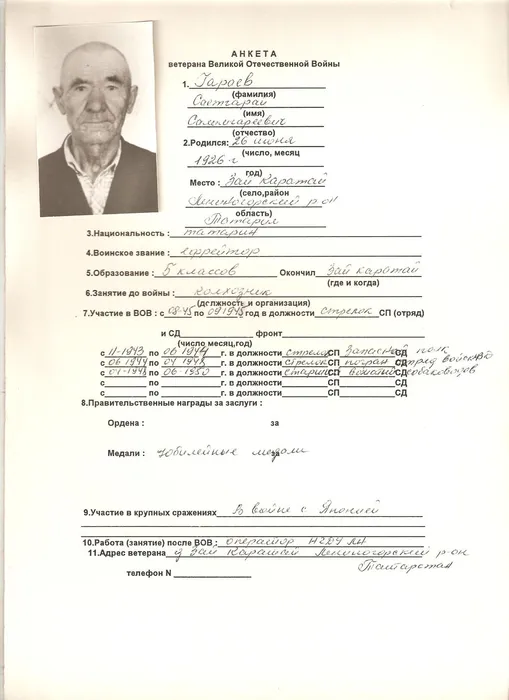 АНКЕТА
ветерана Великой Отечественной Войны
1. Гараев
(фамилия)
Саетгарай
(имя)
Салимгареевич
(отчество)
2.Родился: 26 июня
(число, месяц
1926 г
год)
Место : Зай Каратай
(село,район
Лениногорский р он
область)
Татария
3.Национальность : татарин
4.Воинское звание : ефрейтор
5.Образование : 5 классов Окончил Зай каратай
(где и когда)
6.Занятие до войны : колхозник
(должность и организация)
7.Участие в ВОВ : с 08-45 по 09 1945 год в должности стрелок СП (отряд)
и СД фронт
(число месяц,год)
с 11-1943 по 06 1944 г. в должности стрелок СП Запасной СД полк
с 06 1944 по 04 1948 г. в должности стрелок СП погран СД войск
с 04-1948 по 06-1950 г. в должности СП СД собаководов
с по г. в должности СП СД
с по г. в должности СП СД
8.Правительственные награды за заслуги :
Ордена : за
Медали : Юбилейные медали за
9.Участие в крупных сражениях В войне с Японией
10.Работа (занятие) после ВОВ : оператор НГДУ
11.Адрес ветерана Зай Каратай Лениногорский р он
Татарстан
телефон N